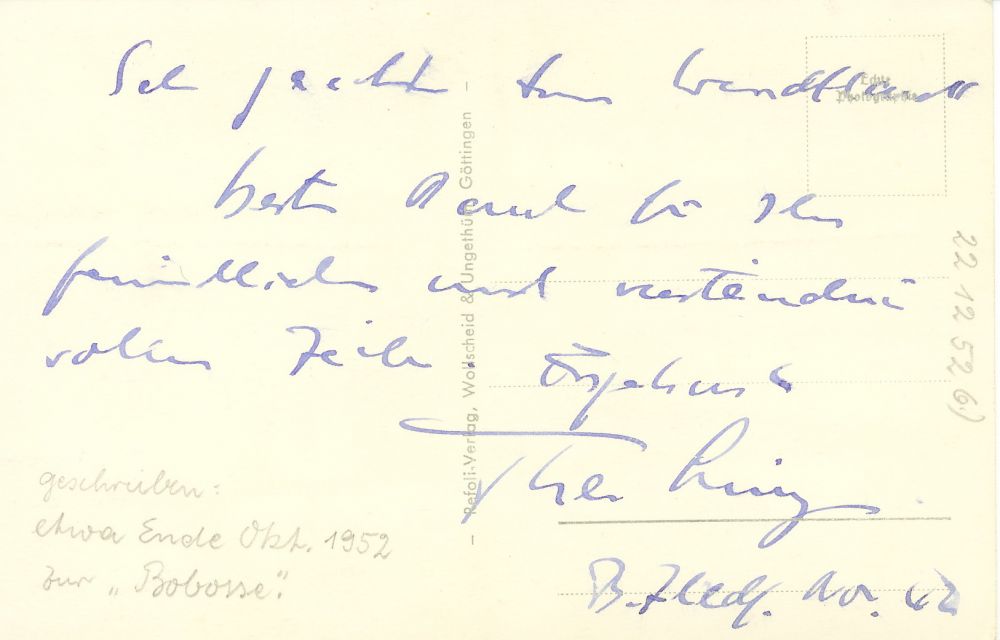 Sehr
besten Dank für Ihre
freundlichen und verständnis
vollen Zeilen. Ergebenst
Theo Lingen
Nov. 42
Echte
Photographie
– Refoli-Verlag, Wollscheid & Ungethüm, Göttingen –
22 12 52 6)
geschrieben:
etwa Ende Okt. 1952
zur „Bobosse".